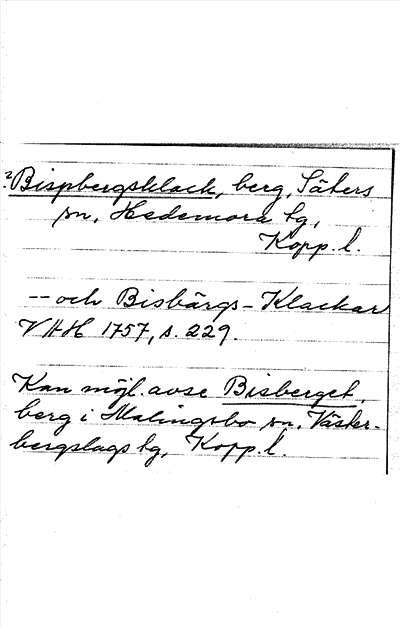 ?Bispbergsklack, berg, Säters
sn, Hedemora tg,
Kopp. l.
-- och Bisbärgs-Klackar
VHH 1757, s. 229.
Kan möjl. avse Bisberget,
berg i Malingsbo sn, Väster-
bergslags tg, Kopp. l.